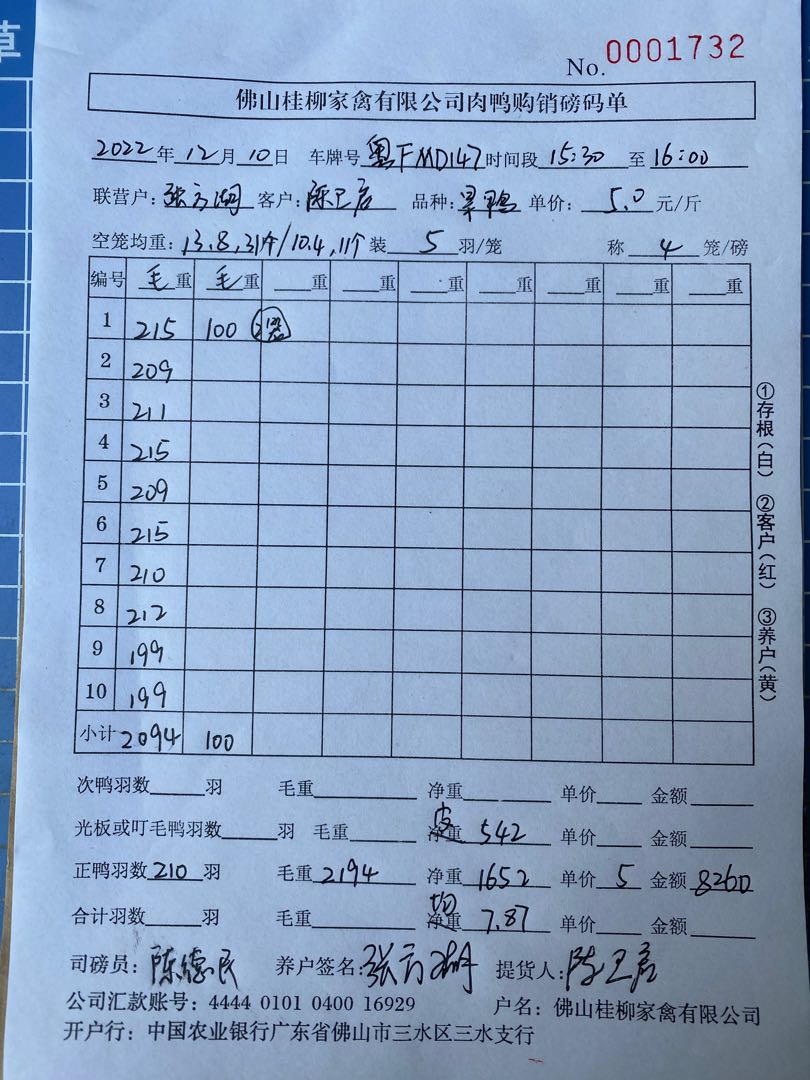 草
No. 0001732
佛山桂柳家禽有限公司肉鸭购销磅码单
2022年12月10日 车牌号粤FMD147时间段15:30至16:00
联营户: 张方湖 客户: 陈卫启 品种: 单价: 5.0元/斤
空笼均重: 13.8,31个/10.4,11个装5羽/笼 称4笼/磅
编号 毛重 毛重 重 重 重 重 重 重 重
1 215 100
2 209
3 211
4 215
5 209
6 215
7 210
8 212
9 199
10 199
小计 2094 100
①存根(白) ②客户(红) ③养户(黄)
次鸭羽数 羽 毛重 净重 单价 金额
光板或叮毛鸭羽数 羽 毛重 净重 皮 542 单价 金额
正鸭羽数210羽 毛重2194 净重1652 单价5 金额8260
合计羽数 羽 毛重 净重 均 7.87 单价 金额
司磅员: 陈德民 养户签名: 张方湖 提货人: 陈卫启
公司汇款账号: 4444 0101 0400 16929 户名: 佛山桂柳家禽有限公司
开户行: 中国农业银行广东省佛山市三水区三水支行